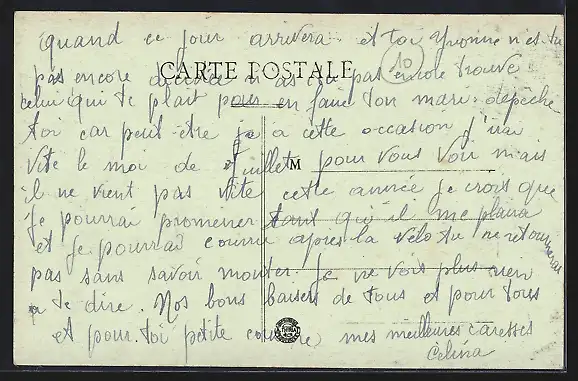 quand ce jour arrivera. et toi Yvonne n'es tu
pas encore n'as tu pas encore trouvé
CARTE POSTALE
10
celui qui te plait pour en faire ton mari. dépêche
toi car peut-être je a cette occasion j'irai
vite le moi de Juillet pour vous voir mais
M
il ne vient pas vite cette année je crois que
je pourrai promener tant qu'il me plaira
et je pourrai courrir après la vélo tu ne retourneras
pas sans savoir monter. Je ne vois plus rien
a te dire. Nos bons baisers de tous et pour tous
et pour toi petite mes meilleures caresses
Célina